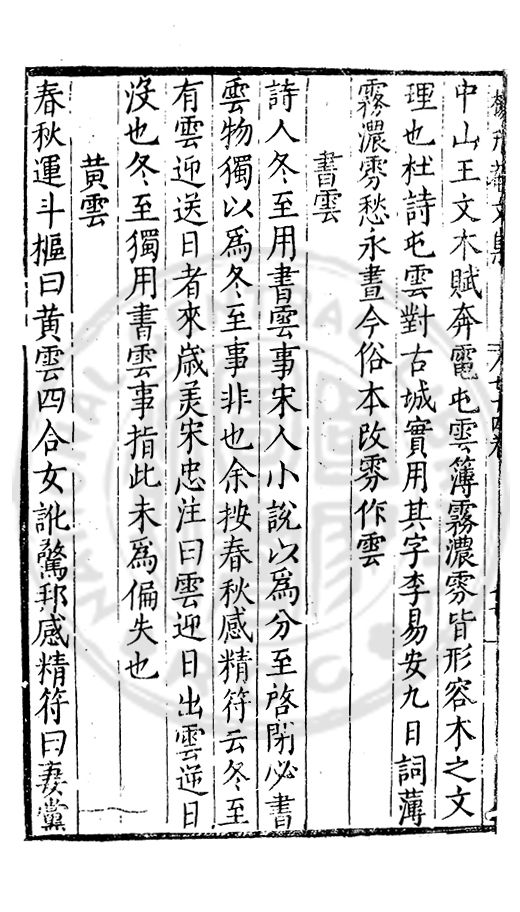 中山王文木賦奔電屯雲簿霧濃雰皆形容木之文
理也杜詩屯雲對古城實用其字李易安九日詞薄
霧濃雰愁永晝今俗本改雰作雲
書雲
詩人冬至用書雲事宋人小說以爲分至啓閉必書
雲物獨以爲冬至事非也余按春秋感精符云冬至
有雲迎送日者來歲美宋忠注曰雲迎日出雲逆日
沒也冬至獨用書雲事指此未爲偏失也
黄雲
春秋運斗樞曰黄雲四合女訛驚邦感精符曰妻黨